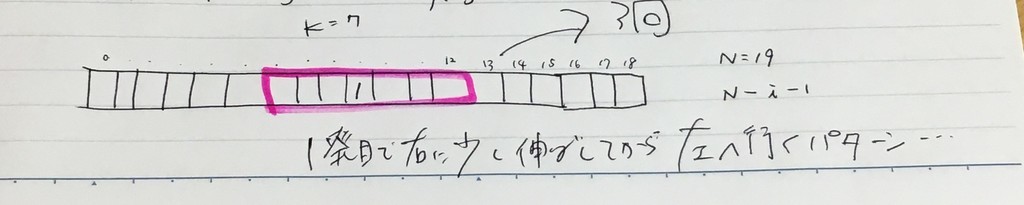 K=7
30
0 12 13 14 15 16 17 18
N=19
1
N-i-1
1発目で右に少し伸ばしてから左へ行くパターン…